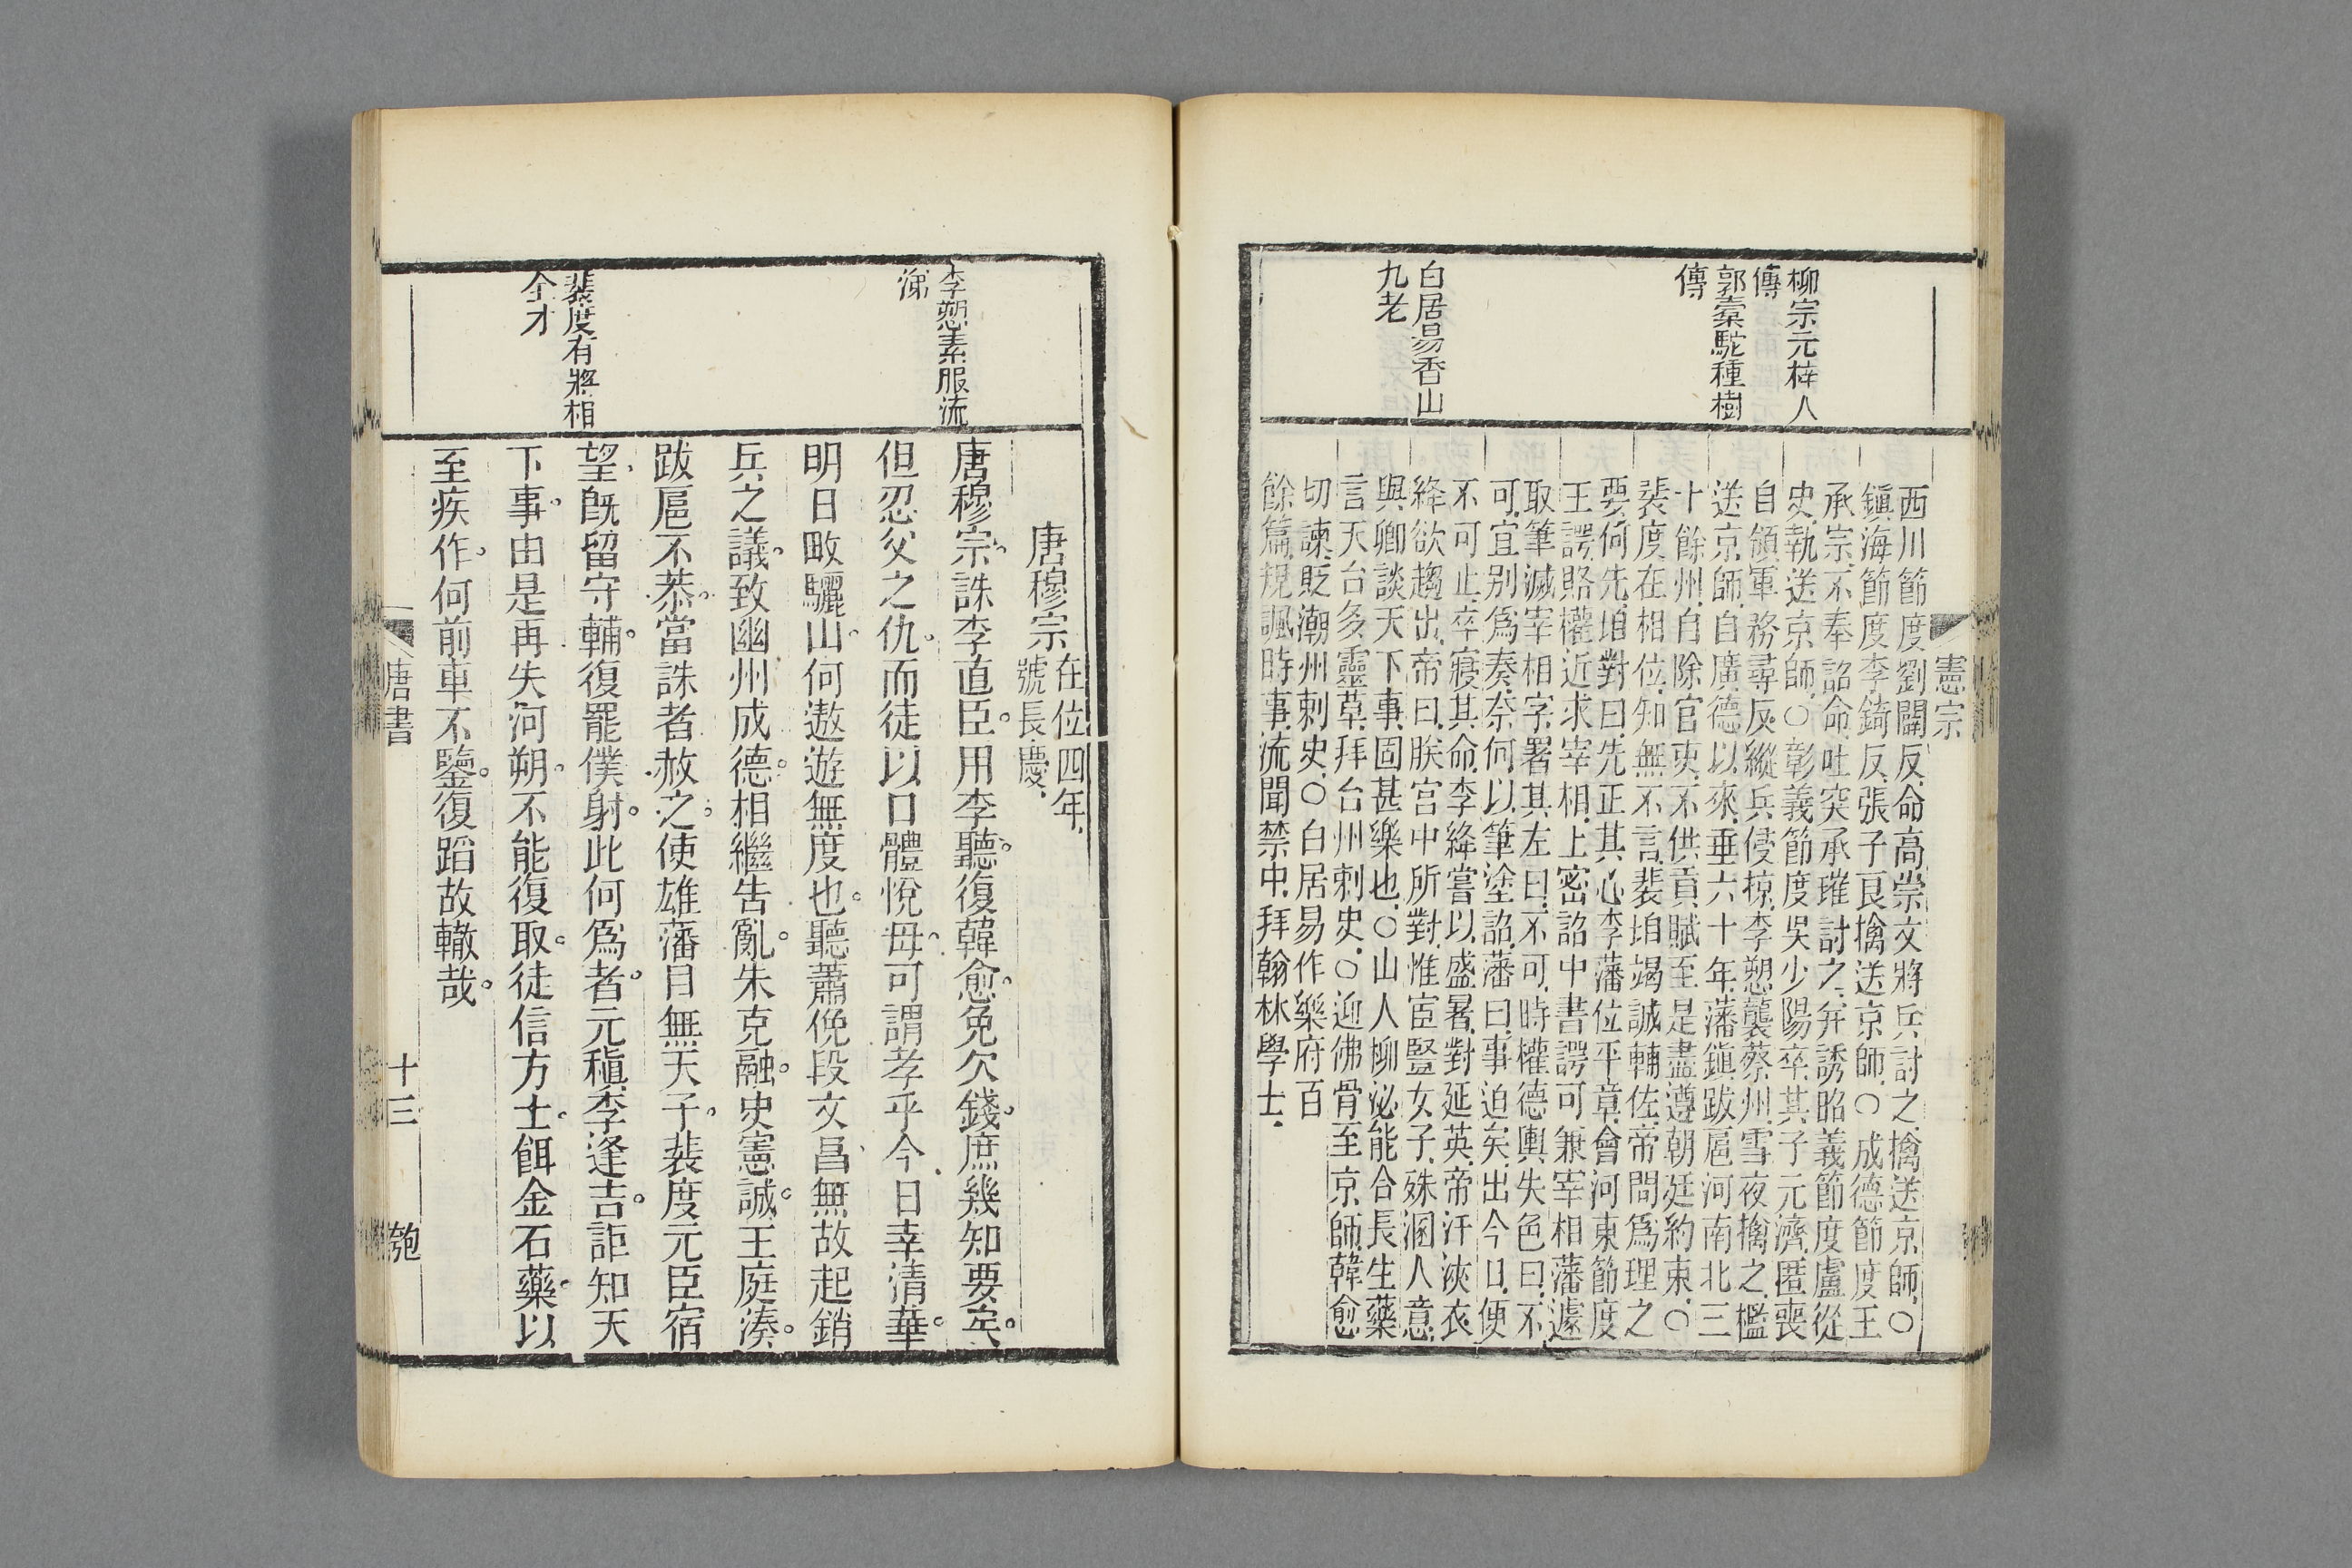 柳宗元梓人
傳
郭橐駝種樹
傳
白居易香山
九老
憲宗
西川節度劉闢反命高崇文將兵討之擒送京師○
鎮海節度李錡反張子良擒送京師○成德節度王
承宗不奉詔命吐突承璀討之幷誘昭義節度盧從
史執送京師○彰義節度吳少陽卒其子元濟匿喪
自領軍務尋反縱兵侵掠李愬襲蔡州雪夜擒之檻
送京師自廣德以來垂六十年藩鎮跋扈河南北三
十餘州自除官吏不供貢賦至是盡遵朝廷約束○
裴度在相位知無不言裴垍竭誠輔佐帝問爲理之
要何先垍對曰先正其心李藩位平章會河東節度
王諤賂權近求宰相上密詔中書諤可兼宰相藩遽
取筆滅宰相字署其左曰不可時權德輿失色曰不
可宜別爲奏奈何以筆塗詔藩曰事迫矣出今日便
不可止卒寢其命李絳嘗以盛暑對延英帝汗浹衣
絳欲趨出帝曰朕宮中所對惟宦豎女子殊溷人意
與卿談天下事固甚樂也○山人柳泌能合長生藥
言天台多靈草拜台州刺史○迎佛骨至京師韓愈
切諫貶潮州刺史○白居易作樂府百
餘篇規諷時事流聞禁中拜翰林學士
李愬素服流
涕
裴度有將相
全才
唐穆宗在位四年
號長慶
唐穆宗誅李直臣用李聽復韓愈免欠錢庶幾知要矣
但忍父之仇而徒以口體悅毋可謂孝乎今日幸清華
明日畋驪山何遨遊無度也聽蕭俛段文昌無故起銷
兵之議致幽州成德相繼告亂朱克融史憲誠王庭湊
跋扈不恭當誅者赦之使雄藩目無天子裴度元臣宿
望旣留守輔復罷僕射此何爲者元稹李逢吉詎知天
下事由是再失河朔不能復取徒信方士餌金石藥以
至疾作何前車不鑒復蹈故轍哉
唐書
十三